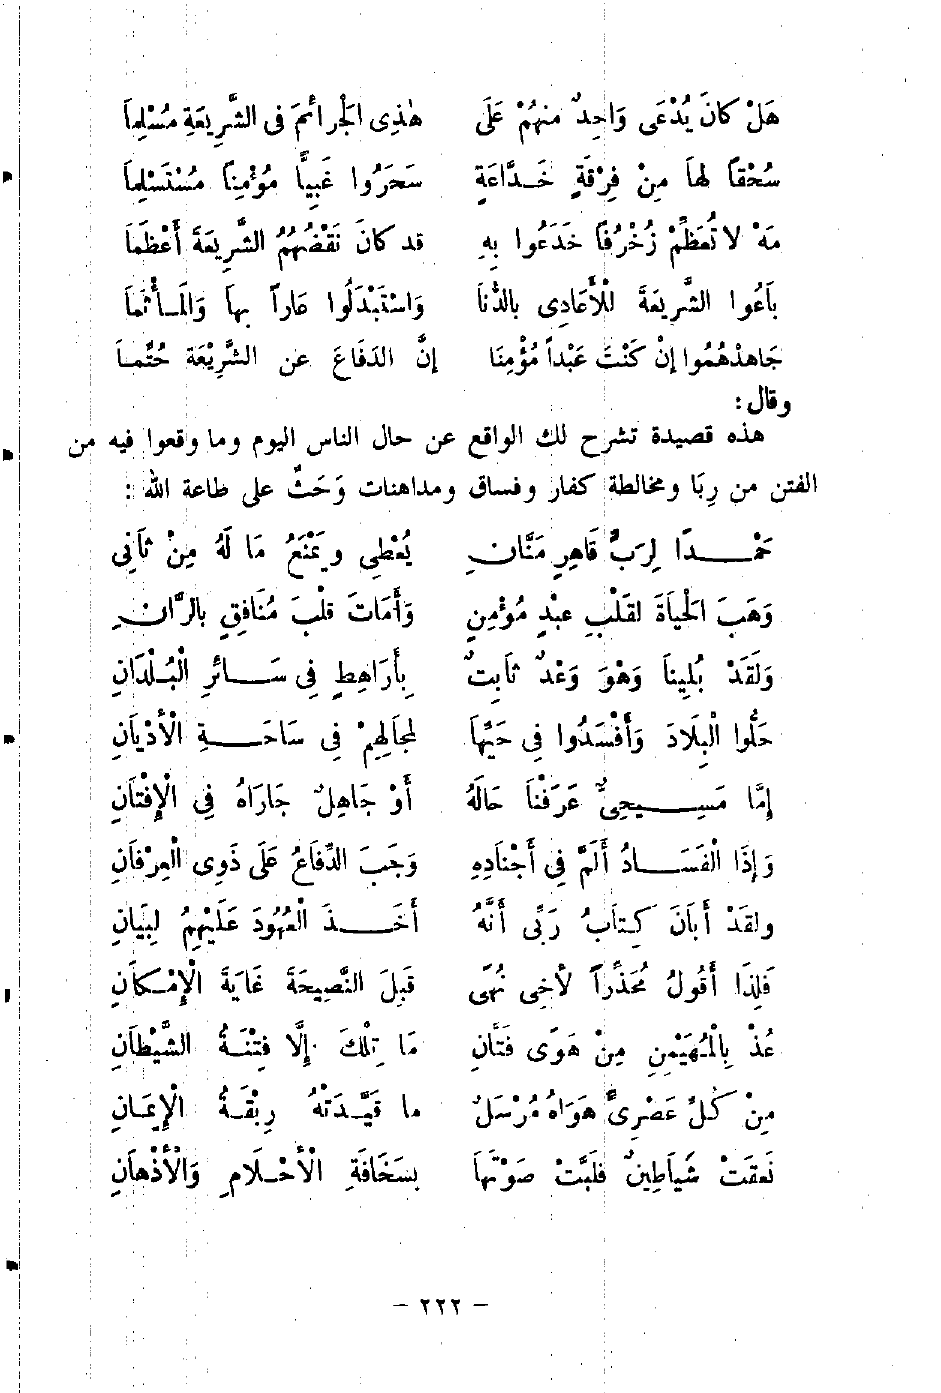 هَلْ كانَ يُدْعَى وَاحِدٌ منهُمْ عَلَى هٰذِى الْجَرائمَ فى الشَّرِيعَةِ مُسْلِماَ
سُحْقاً لهاَ مِنْ فِرْقَةٍ خَدَّاعَةٍ سَحَرُوا غَبِيًّا مُؤْمِناً مُسْتَسْلِماَ
مَهْ لا تُعَظِّمْ زُخْرُفاً خَدَعُوا بِهِ قد كانَ نَقْضُهُمُ الشَّرِيعَةَ أَعْظَماَ
باَعُوا الشَّرِيعَةَ لْلأَعَادِى بالدُّناَ وَاسْتَبْدَلُوا عَاراً بهاَ وَالْمَأْثَماَ
جَاهِدْهُمُوا إنْ كَنْتَ عَبْداً مُؤْمِنَا إنَّ الدَفَاعَ عن الشَّرِيْعَة حُتَّماَ
وقال :
هذه قصيدة تشرح لك الواقع عن حال الناس اليوم وما وقعوا فيه من
الفتن من رِبَا ومخالطة كفار وفساق ومداهنات وَحَثٌّ على طاعة الله :
حَمْدًا لِرَبٍّ قَاهِرٍ مَنَّانِ يُعْطِى ويَمْنَعُ مَا لَهُ مِنْ ثاَنِى
وَهَبَ الْحَياَةَ لقَلْبِ عبْدٍ مُؤْمِنٍ وَأَمَاتَ قلْبَ مُنَافِقٍ بالرَّانِ
وَلَقَدْ بُلِيناَ وَهْوَ وَعْدٌ ثاَبِتٌ بِأَرَاهِطٍ فِى سَائرِ الْبُلْدَانِ
حَلُّوا الْبِلَادَ وَأَفْسَدُوا فِى حَيِّهاَ لمِجَالِهِمْ فِى سَاحَةِ الْأَدْياَنِ
إمَّا مَسِيحِىٌّ عَرَفْناَ حَالَهُ أَوْ جَاهِلٌ جَارَاهُ فِى الْإفْتاَنِ
وَإذَا الْفَسَادُ أَلَمَّ فِى أَجْنَادِهِ وَجَبَ الدِّفَاعُ عَلَى ذَوِى الْعِرْفاَنِ
ولقَدْ أَباَنَ كِتاَبُ رَبِّى أَنَّهُ أَخَذَ الْعُهُودَ عَلَيْهِمُ لِبَيانِ
فَلِذَا أَقُولُ مُحَذِّراً لأخِى نُهًى قَبِلَ النَّصِيحَةَ غَايَةَ الْإِمْكاَنِ
عُذْ بِالْمُهَيْمِنِ مِنْ هَوًى فَتَّانِ مَا تِلْكَ إلَّا فِتْنَةُ الشَّيْطاَنِ
مِنْ كلِّ عَصْرِىٍّ هَوَاهُ مُرْسَلٌ ما قَيَّدَتْهُ رِبْقَةُ الْإِيمَانِ
نَعقَتْ شَياَطِينٌ فلَبَّتْ صَوْتَهاَ بسَخَافَةِ الْأَحْلَامِ وَالْأَذْهاَنِ
- ٢٢٢ -